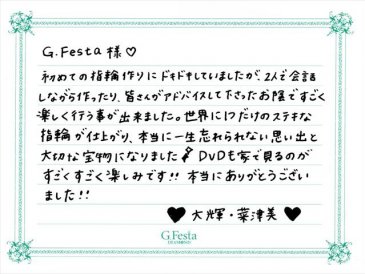 G.Festa 様♡
初めての指輪作りにドキドキしていましたが、2人で会話
しながら作ったり、皆さんがアドバイスして下さったお陰ですごく
楽しく行う事が出来ました。世界に1つだけのステキな
指輪が仕上がり、本当に一生忘れられない思い出と
大切な宝物になりました DVDも家で見るのが
すごくすごく楽しみです!! 本当にありがとうござい
ました!!
♥ 大輝・菜津美 ♥
G.Festa
DIAMOND